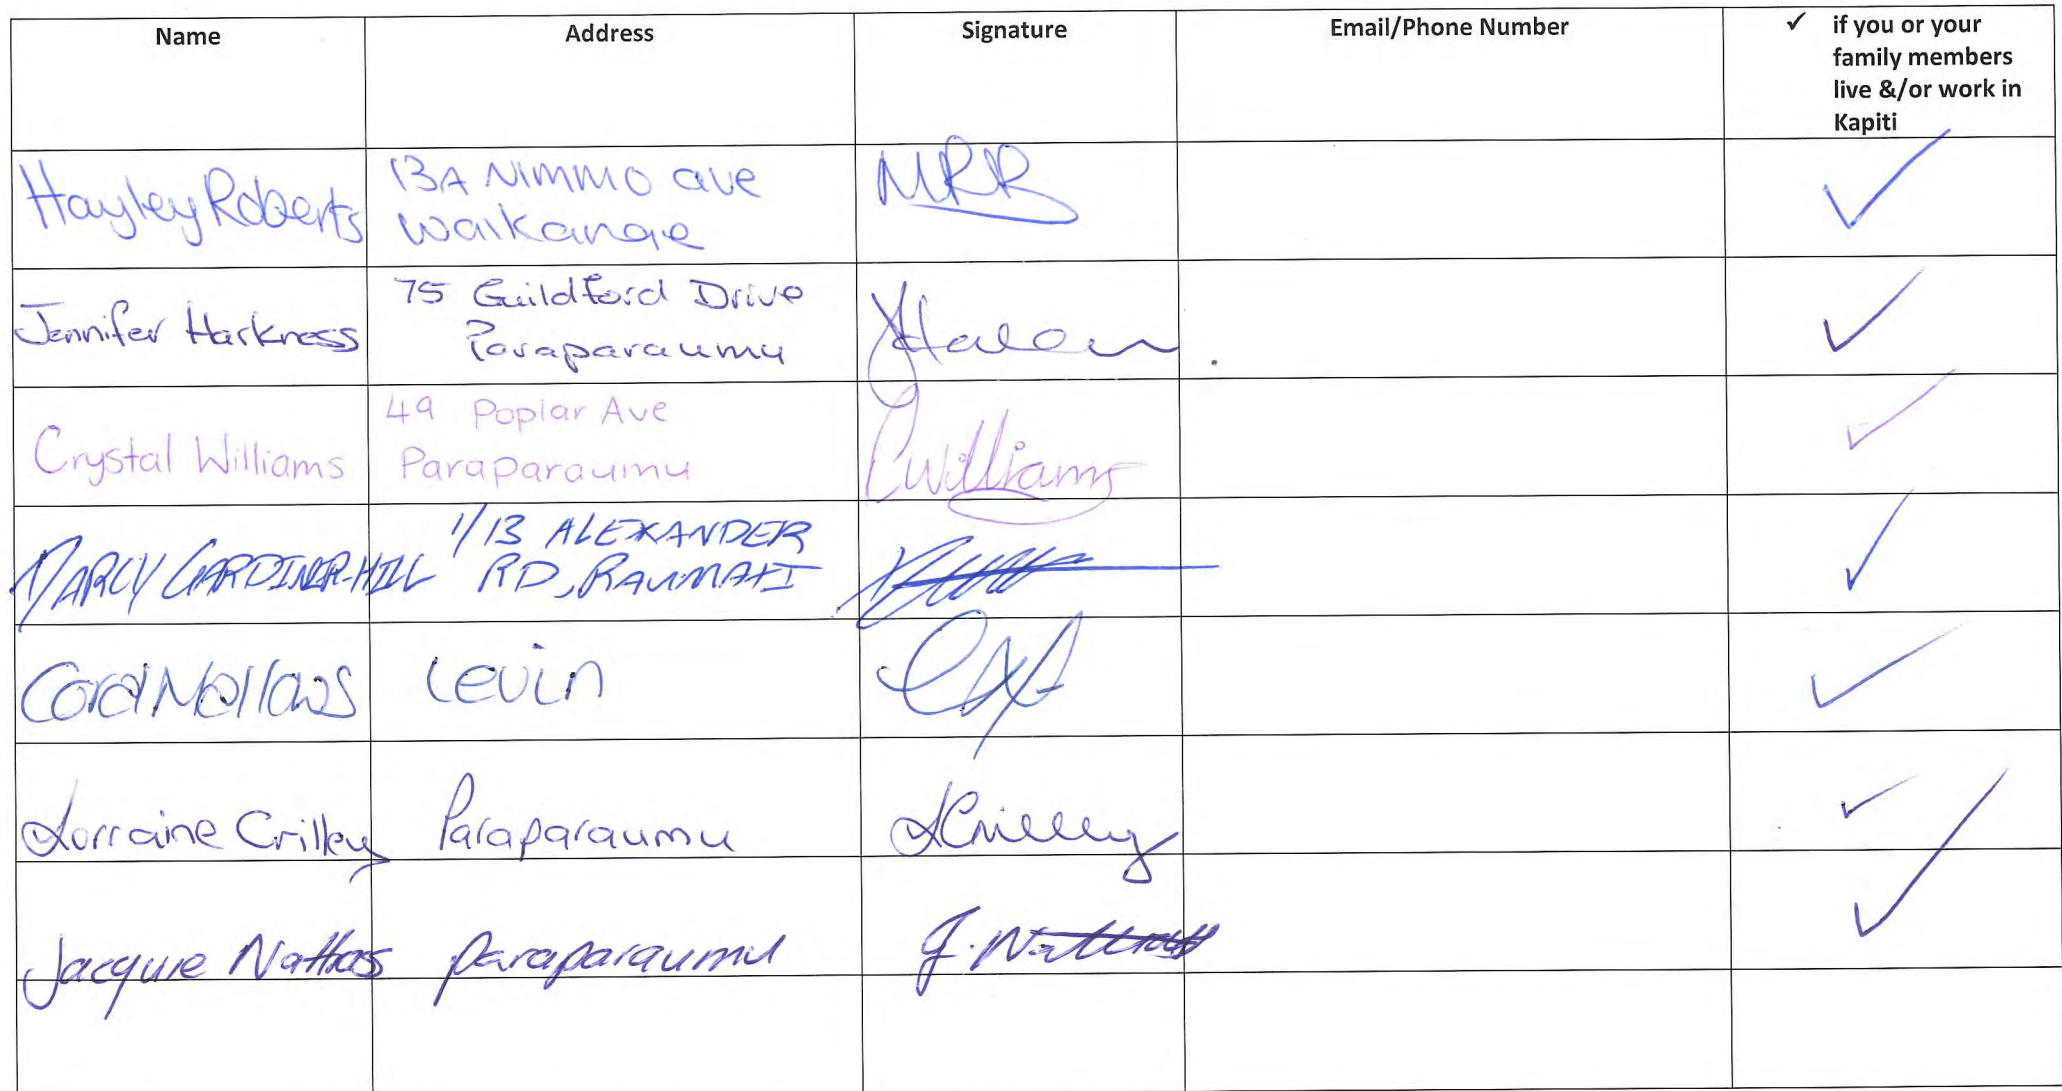 Name Address Signature Email/Phone Number ✓ if you or your
family members
live &/or work in
Kapiti
Hayley Roberts 13A Nimmo ave MRR ✓
Waikanae
Jennifer Harkness 75 Guildford Drive ✓
Paraparaumu
Crystal Williams 49 Poplar Ave CWilliams ✓
Paraparaumu
DARCY GARDINER-HILL 1/13 ALEXANDER ✓
RD, RAUMATI
Levin ✓
Lorraine Crilley Paraparaumu LCrilley ✓
Jacquie Nattrass Paraparaumu J. Nattrass ✓